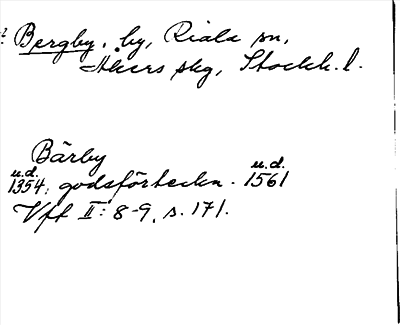 Bergby, by, Riala sn,
Åkers skg, Stockh. l.
Bärby
u.d. u.d.
1354, godsförteckn. 1561
Vfl II: 8-9, s. 171.